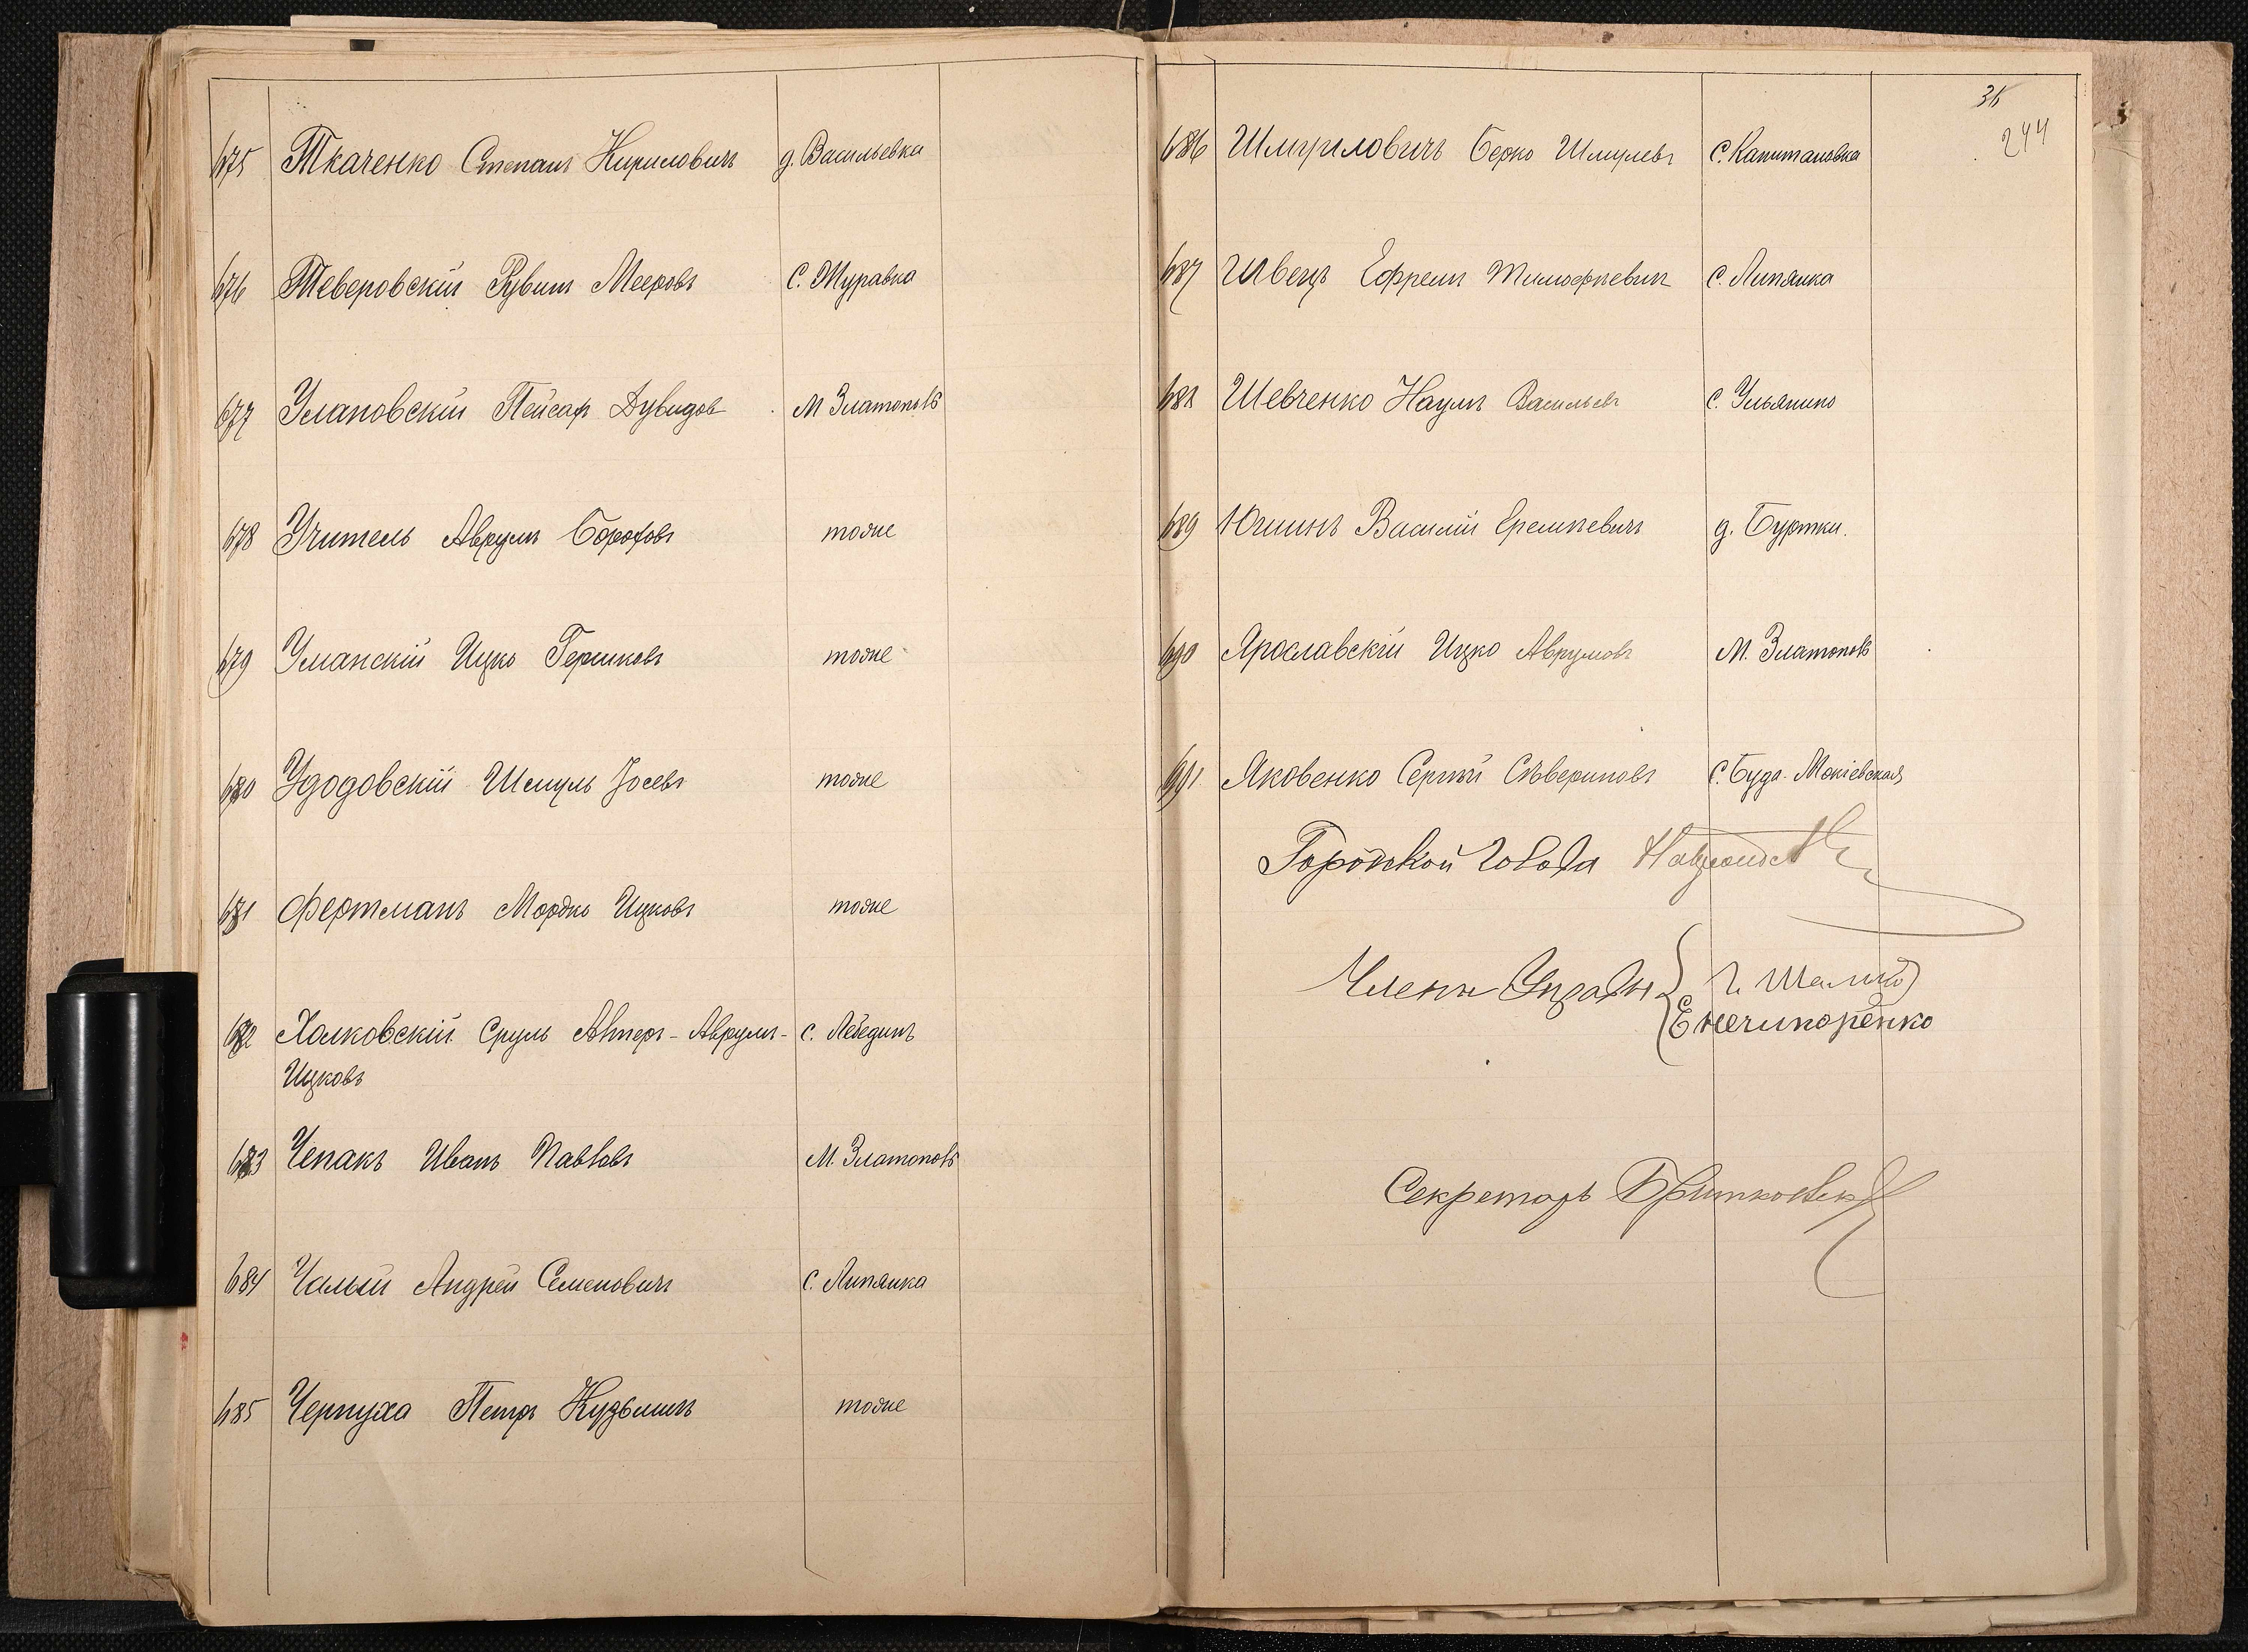 675 Ткаченко Степанъ Кириловичъ д. Васильевка
676 Теверовскій Рувинъ Мееровъ С. Журавка
677 Улановскій Пейсах Дувидов М Златополь
678 Учитель Аврумъ Бороховъ тоже
679 Уманскій Ицко Гершковъ тоже
680 Удодовскій Шмуль Іосевъ тоже
681 Фертманъ Мордко Ицковъ тоже
682 Халковскій Сруль Аврумъ- с. Лебединъ
Ицковъ
683 Чепакъ Иванъ Павловъ М. Златополь
684 Чалый Андрей Семеновичъ С. Липянка
685 Чернуха Петръ Кузьминъ тоже
36
244
686 Шмуиловичъ Берко Шмулевъ С. Капитановка
687 Швецъ Ефремъ Тимофѣевичъ С. Липянка
688 Шевченко Наумъ Васильевъ С. Ульянино
689 Юшинъ Василій Еремѣевичъ д. Буртки.
690 Ярославскій Ицко Аврумовъ М. Златополь
691 Яковенко Сергѣй Сѣвериновъ С. Буда-Макіевская
Городской Голова
Члены Управы
Е Нечипоренко
Секретарь